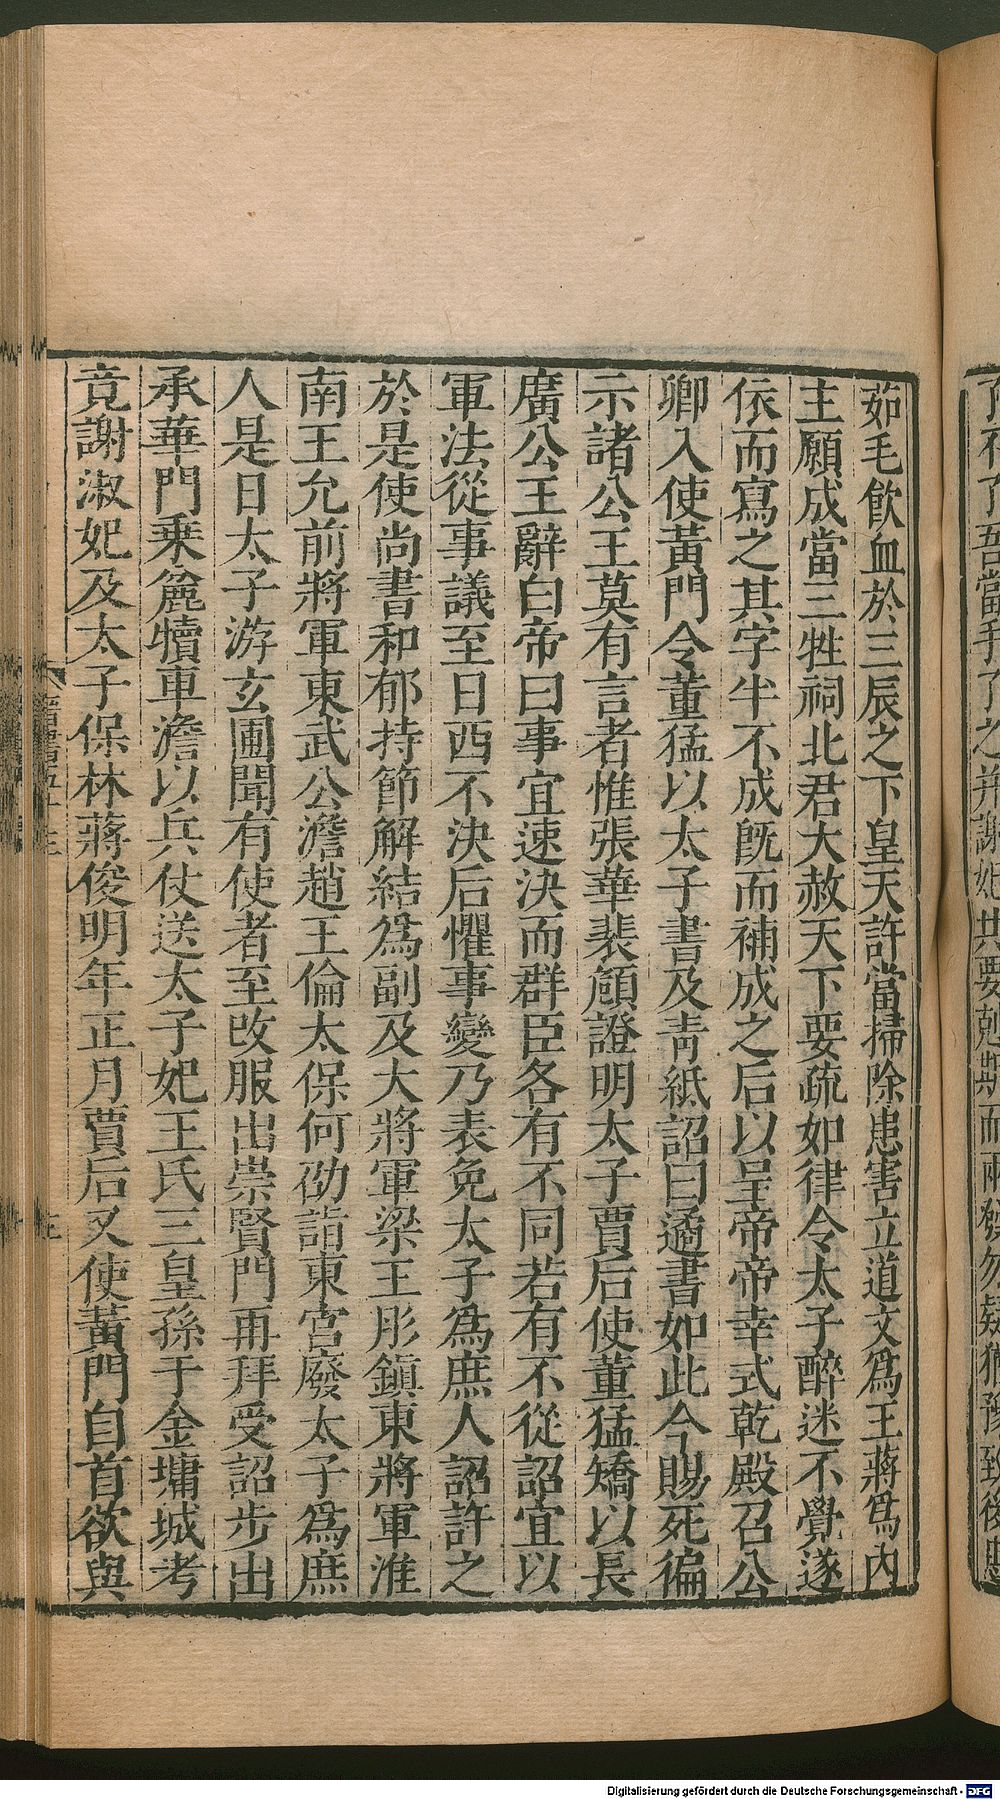 了不了吾當手了之并謝妃共要剋期而兩發勿疑猶豫致後患
茹毛飲血於三辰之下皇天許當掃除患害立道文爲王蔣爲內
主願成當三牲祠北君大赦天下要疏如律令太子醉迷不覺遂
依而寫之其字半不成旣而補成之后以呈帝帝幸式乾殿召公
卿入使黃門令董猛以太子書及靑紙詔曰遹書如此今賜死徧
示諸公王莫有言者惟張華裴頠證明太子賈后使董猛矯以長
廣公主辭白帝曰事宜速決而群臣各有不同若有不從詔宜以
軍法從事議至日西不決后懼事變乃表免太子爲庶人詔許之
於是使尚書和郁持節解結爲副及大將軍梁王肜鎮東將軍淮
南王允前將軍東武公澹趙王倫太保何劭詣東宮廢太子爲庶
人是日太子游玄圃聞有使者至改服出崇賢門再拜受詔步出
承華門乗麄犢車澹以兵仗送太子妃王氏三皇孫于金墉城考
竟謝淑妃及太子保林蔣俊明年正月賈后又使黃門自首欲與
Digitalisierung gefördert durch die Deutsche Forschungsgemeinschaft - DFG